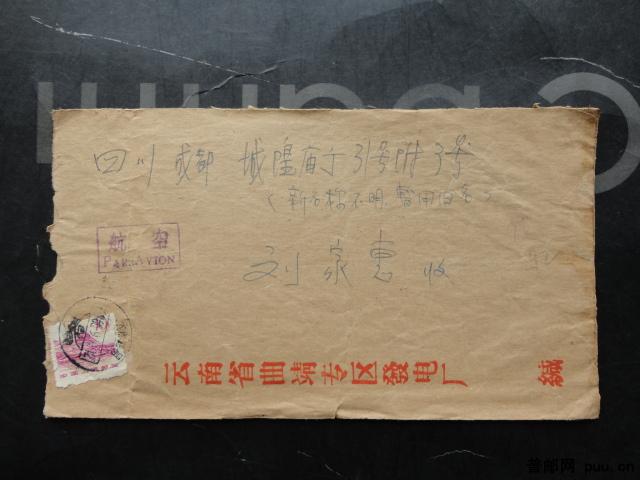 四川成都 城隍庙下31号附3号
(新名称不明,暂用旧名)
航空
PAR AVION
刘家惠 收
云南省曲靖专区發电厂 缄
普邮网 puu.cn